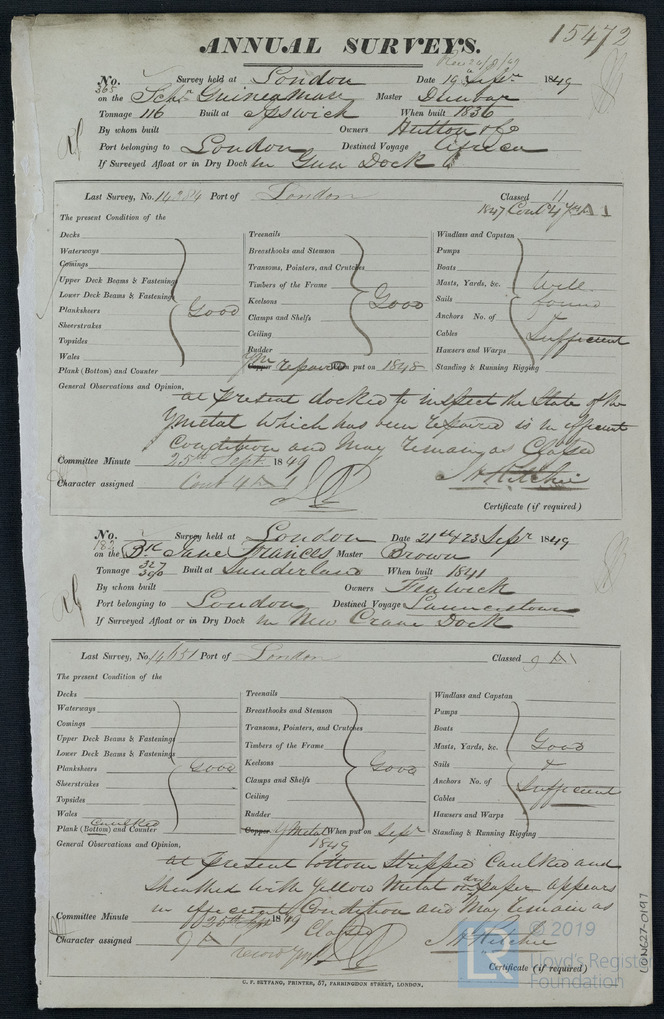 15472
ANNUAL SURVEYS.
No. 365 Survey held at London Date 19 Septr 1849
on the Schr Guineaman Master Dunbar
Tonnage 116 Built at Ipswich When built 1836
By whom built Owners Hutton & Co
Port belonging to London Destined Voyage Africa
If Surveyed Afloat or in Dry Dock in Gun Dock
Last Survey, No. 14384 Port of London Classed 11
1847 Contd 4 yrs A1
The present Condition of the
Decks
Waterways
Comings
Upper Deck Beams & Fastenings
Lower Deck Beams & Fastenings
Planksheers
Sheerstrakes
Topsides
Wales
Plank (Bottom) and Counter
Good
Treenails
Breasthooks and Stemson
Transoms, Pointers, and Crutches
Timbers of the Frame
Keelsons
Clamps and Shelfs
Ceiling
Rudder
Copper YM repaired When put on 1848
Good
Windlass and Capstan
Pumps
Boats
Masts, Yards, &c.
Sails
Anchors No. of
Cables
Hawsers and Warps
Standing & Running Rigging
Well
found
&
Sufficient
General Observations and Opinion,
at present docked to inspect the State of the
Y metal which has been repaired is in efficient
Condition and May remain as Classed
Committee Minute 25th Sept. 1849
Character assigned Contd 4 A 1
J H Ritchie
Certificate (if required)
No. 182 Survey held at London Date 21st & 23 Sepr 1849
on the Bk Jane Frances Master Brown
Tonnage 327 Built at Sunderland When built 1841
By whom built Owners Fenwick
Port belonging to London Destined Voyage Launcestown
If Surveyed Afloat or in Dry Dock in New Crane Dock
Last Survey, No. 14651 Port of London Classed 9 A1
The present Condition of the
Decks
Waterways
Comings
Upper Deck Beams & Fastenings
Lower Deck Beams & Fastenings
Planksheers
Sheerstrakes
Topsides
Wales
Caulked
Plank (Bottom) and Counter
Good
Treenails
Breasthooks and Stemson
Transoms, Pointers, and Crutches
Timbers of the Frame
Keelsons
Clamps and Shelfs
Ceiling
Rudder
Copper Y Metal When put on Sepr
1849
Good
Windlass and Capstan
Pumps
Boats
Masts, Yards, &c.
Sails
Anchors No. of
Cables
Hawsers and Warps
Standing & Running Rigging
Good
&
Sufficient
General Observations and Opinion,
at present bottom Stripped Caulked and
Sheathed with Yellow Metal on dry paper appears
in efficient Condition and May remain as
Classed
Committee Minute 25th Sept 1849
Character assigned 9 A 1
record YM
J H Ritchie
Certificate (if required)
C. F. SEYFANG, PRINTER, 57, FARRINGDON STREET, LONDON.
LON627-0197
LR
© 2019
Lloyd's Register
Foundation